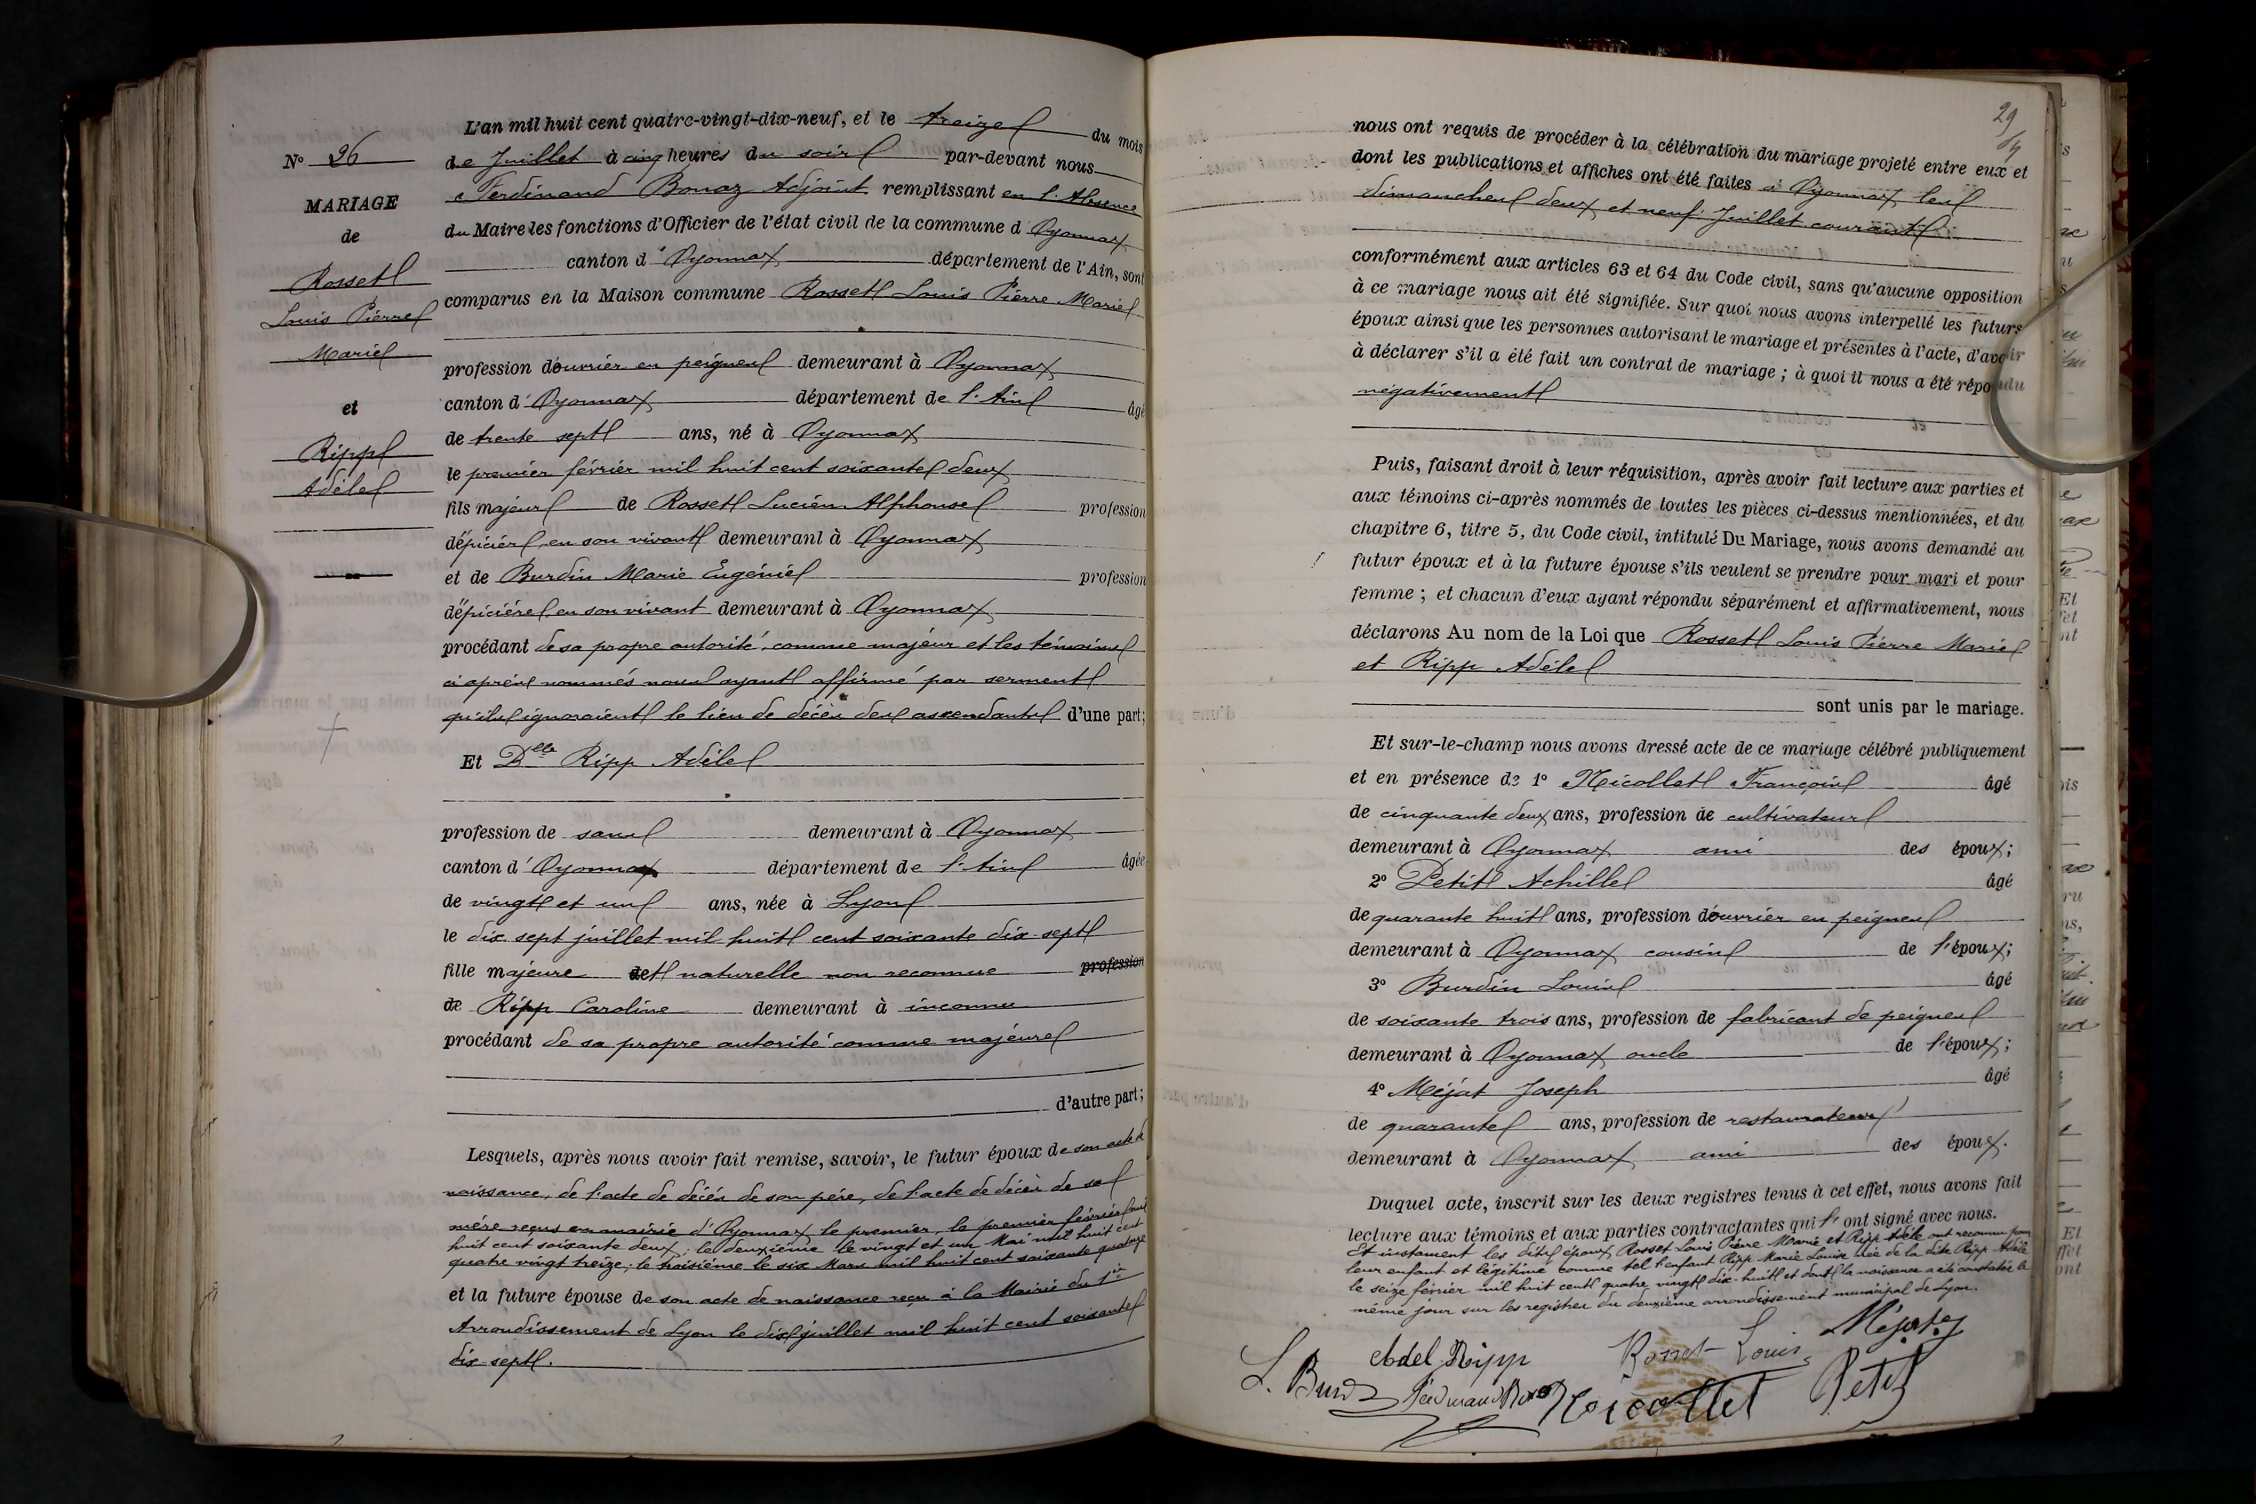 N° 26
MARIAGE
de
Rosset
Louis Pierre
Marie
et
Ripp
Adèle
L'an mil huit cent quatre-vingt-dix-neuf, et le treize du mois
de Juillet à cinq heures du soir par-devant nous
Ferdinand Bonaz Adjoint remplissant en l'Absence
du Maire les fonctions d'Officier de l'état civil de la commune d'Oyonnax
canton d'Oyonnax département de l'Ain, sont
comparus en la Maison commune Rosset Louis Pierre Marie
profession d'ouvrier en peignes demeurant à Oyonnax
canton d'Oyonnax département de l'Ain âgé
de trente sept ans, né à Oyonnax
le premier février mil huit cent soixante deux
fils majeur de Rosset Lucien Alphonse profession
d'épicier en son vivant demeurant à Oyonnax
et de Burdin Marie Eugénie profession
d'épicière en son vivant demeurant à Oyonnax
procédant de sa propre autorité, comme majeur et les témoins
ci après nommés nous ayant affirmé par serment
qu'ils ignoraient le lieu de décès des ascendants d'une part;
Et Delle Ripp Adèle
profession de sans demeurant à Oyonnax
canton d'Oyonnax département de l'Ain âgée
de vingt et un ans, née à Lyon
le dix sept juillet mil huit cent soixante dix-sept
fille majeure et naturelle non reconnue profession
de Ripp Caroline demeurant à inconnu
procédant de sa propre autorité comme majeure
d'autre part;
Lesquels, après nous avoir fait remise, savoir, le futur époux de son acte de
naissance, de l'acte de décès de son père, de l'acte de décès de sa
mère reçus en mairie d'Oyonnax le premier, le premier février mil
huit cent soixante deux; le deuxième le vingt et un Mai mil huit cent
quatre vingt treize; le troisième le six Mars mil huit cent soixante quatorze
et la future épouse de son acte de naissance reçu à la Mairie du 1er
Arrondissement de Lyon le dix juillet mil huit cent soixante
dix-sept.
29
nous ont requis de procéder à la célébration du mariage projeté entre eux et
dont les publications et affiches ont été faites à Oyonnax les
dimanches deux et neuf Juillet courant
conformément aux articles 63 et 64 du Code civil, sans qu'aucune opposition
à ce mariage nous ait été signifiée. Sur quoi nous avons interpellé les futurs
époux ainsi que les personnes autorisant le mariage et présentes à l'acte, d'avoir
à déclarer s'il a été fait un contrat de mariage ; à quoi il nous a été répondu
négativement
Puis, faisant droit à leur réquisition, après avoir fait lecture aux parties et
aux témoins ci-après nommés de toutes les pièces ci-dessus mentionnées, et du
chapitre 6, titre 5, du Code civil, intitulé Du Mariage, nous avons demandé au
futur époux et à la future épouse s'ils veulent se prendre pour mari et pour
femme ; et chacun d'eux ayant répondu séparément et affirmativement, nous
déclarons Au nom de la Loi que Rosset Louis Pierre Marie
et Ripp Adèle
sont unis par le mariage.
Et sur-le-champ nous avons dressé acte de ce mariage célébré publiquement
et en présence de 1° Nicollet François âgé
de cinquante deux ans, profession de cultivateur
demeurant à Oyonnax ami des époux;
2° Petit Achille âgé
de quarante huit ans, profession d'ouvrier en peignes
demeurant à Oyonnax cousin de l'époux;
3° Burdin Louis âgé
de soixante trois ans, profession de fabricant de peignes
demeurant à Oyonnax oncle de l'époux;
4° Méjat Joseph âgé
de quarante ans, profession de restaurateur
demeurant à Oyonnax ami des époux.
Duquel acte, inscrit sur les deux registres tenus à cet effet, nous avons fait
lecture aux témoins et aux parties contractantes qui l'ont signé avec nous.
Et instament les dits époux Rosset Louis Pierre Marie et Ripp Adèle ont reconnu pour
leur enfant et légitimé comme tel l'enfant Ripp Marie Louise née de la dite Ripp Adèle
le seize février mil huit cent quatre vingt dix-huit et dont la naissance a été constatée le
même jour sur les registres du deuxième arrondissement municipal de Lyon.
Adel Ripp Rosset Louis Méjat
L. Burdin Ferdinand Bonaz Nicollet Petit